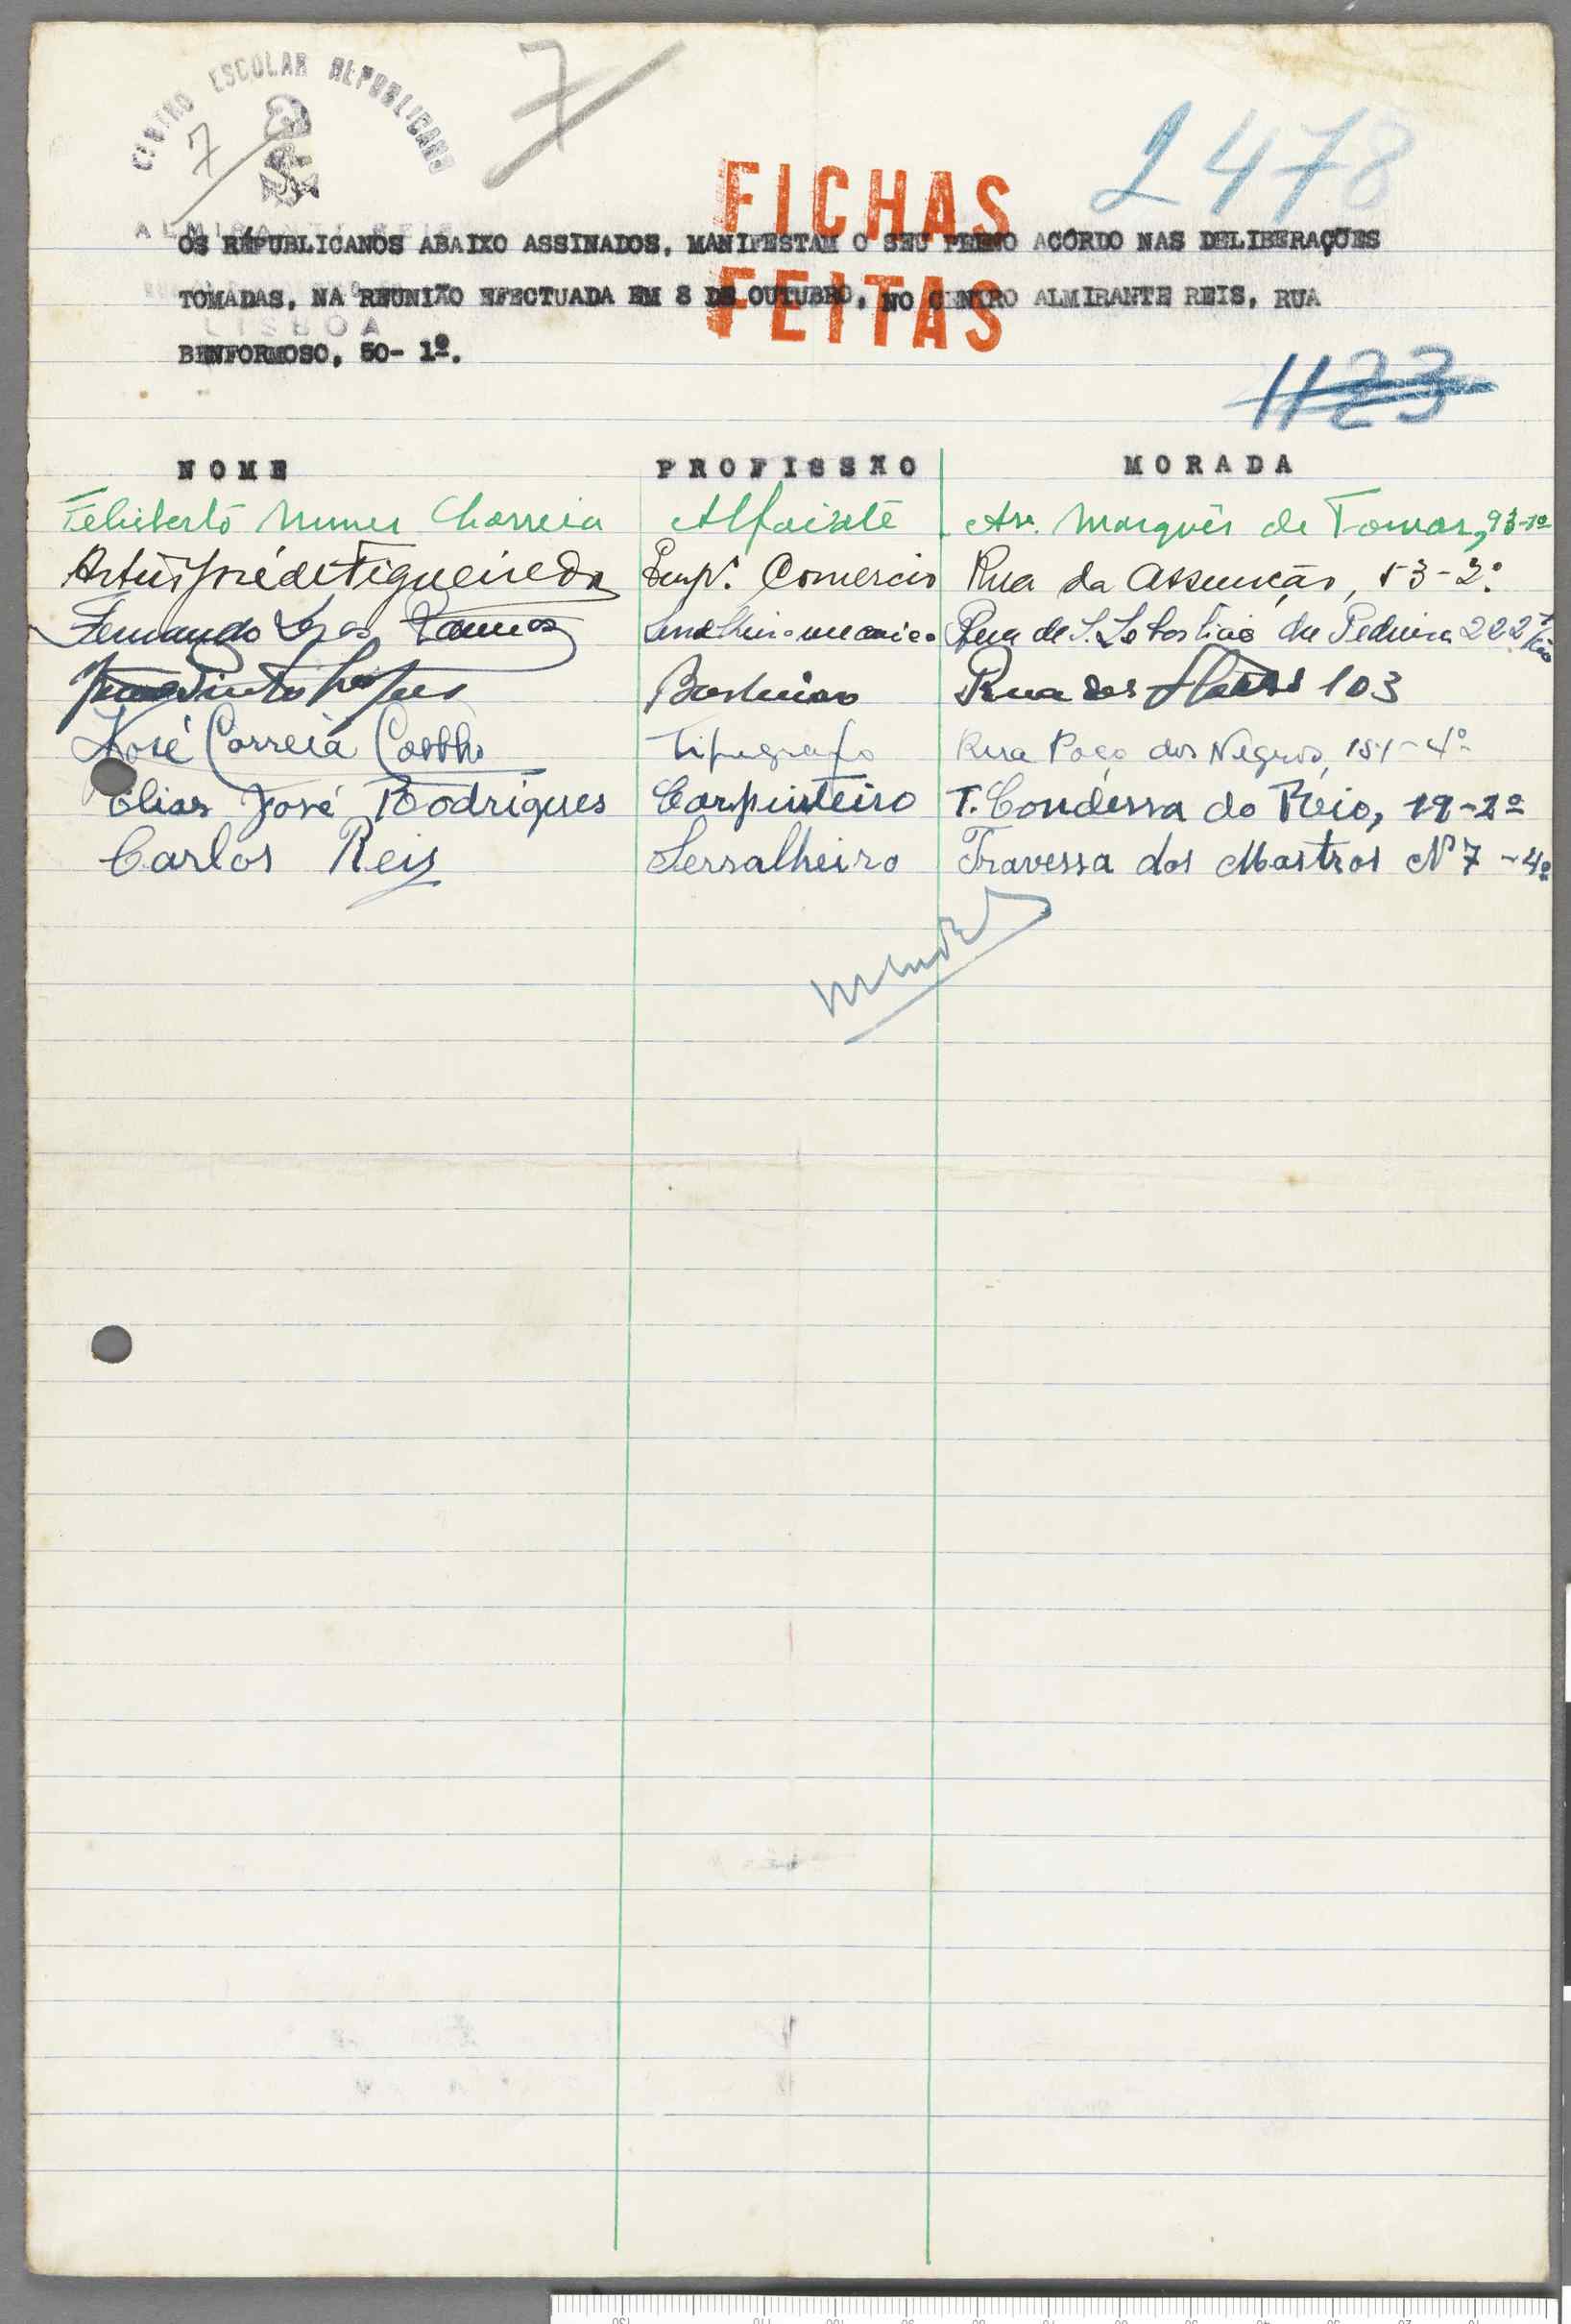 CENTRO ESCOLAR REPUBLICANO
7
7
2478
ALMIRANTE REIS
LISBOA
FICHAS
FEITAS
OS RÉPUBLICANOS ABAIXO ASSINADOS, MANIFESTAM O SEU PLENO ACÓRDO NAS DELIBERAÇÕES
TOMADAS, NA REUNIÃO EFECTUADA EM 8 DE OUTUBRO, NO CENTRO ALMIRANTE REIS, RUA
BENFORMOSO, 50- 1º.
1123
NOME PROFISSÃO MORADA
Feliberto Nunes Charreia Alfaiate Av. Marquês de Tomar, 93-1º
Artur José de Figueiredo Empº. Comercio Rua da Assunção, 53-2º
Fernando Lopes Ramos Serralheiro mecanico Rua de S. Sebastião da Pedreira 222
Rua das 103
José Correia Coelho Tipografo Rua Poço dos Negros, 151-4º
Elias José Rodrigues Carpinteiro T. Condessa do Rio, 19-2º
Carlos Reis Serralheiro Travessa dos Mastros Nº 7-4º